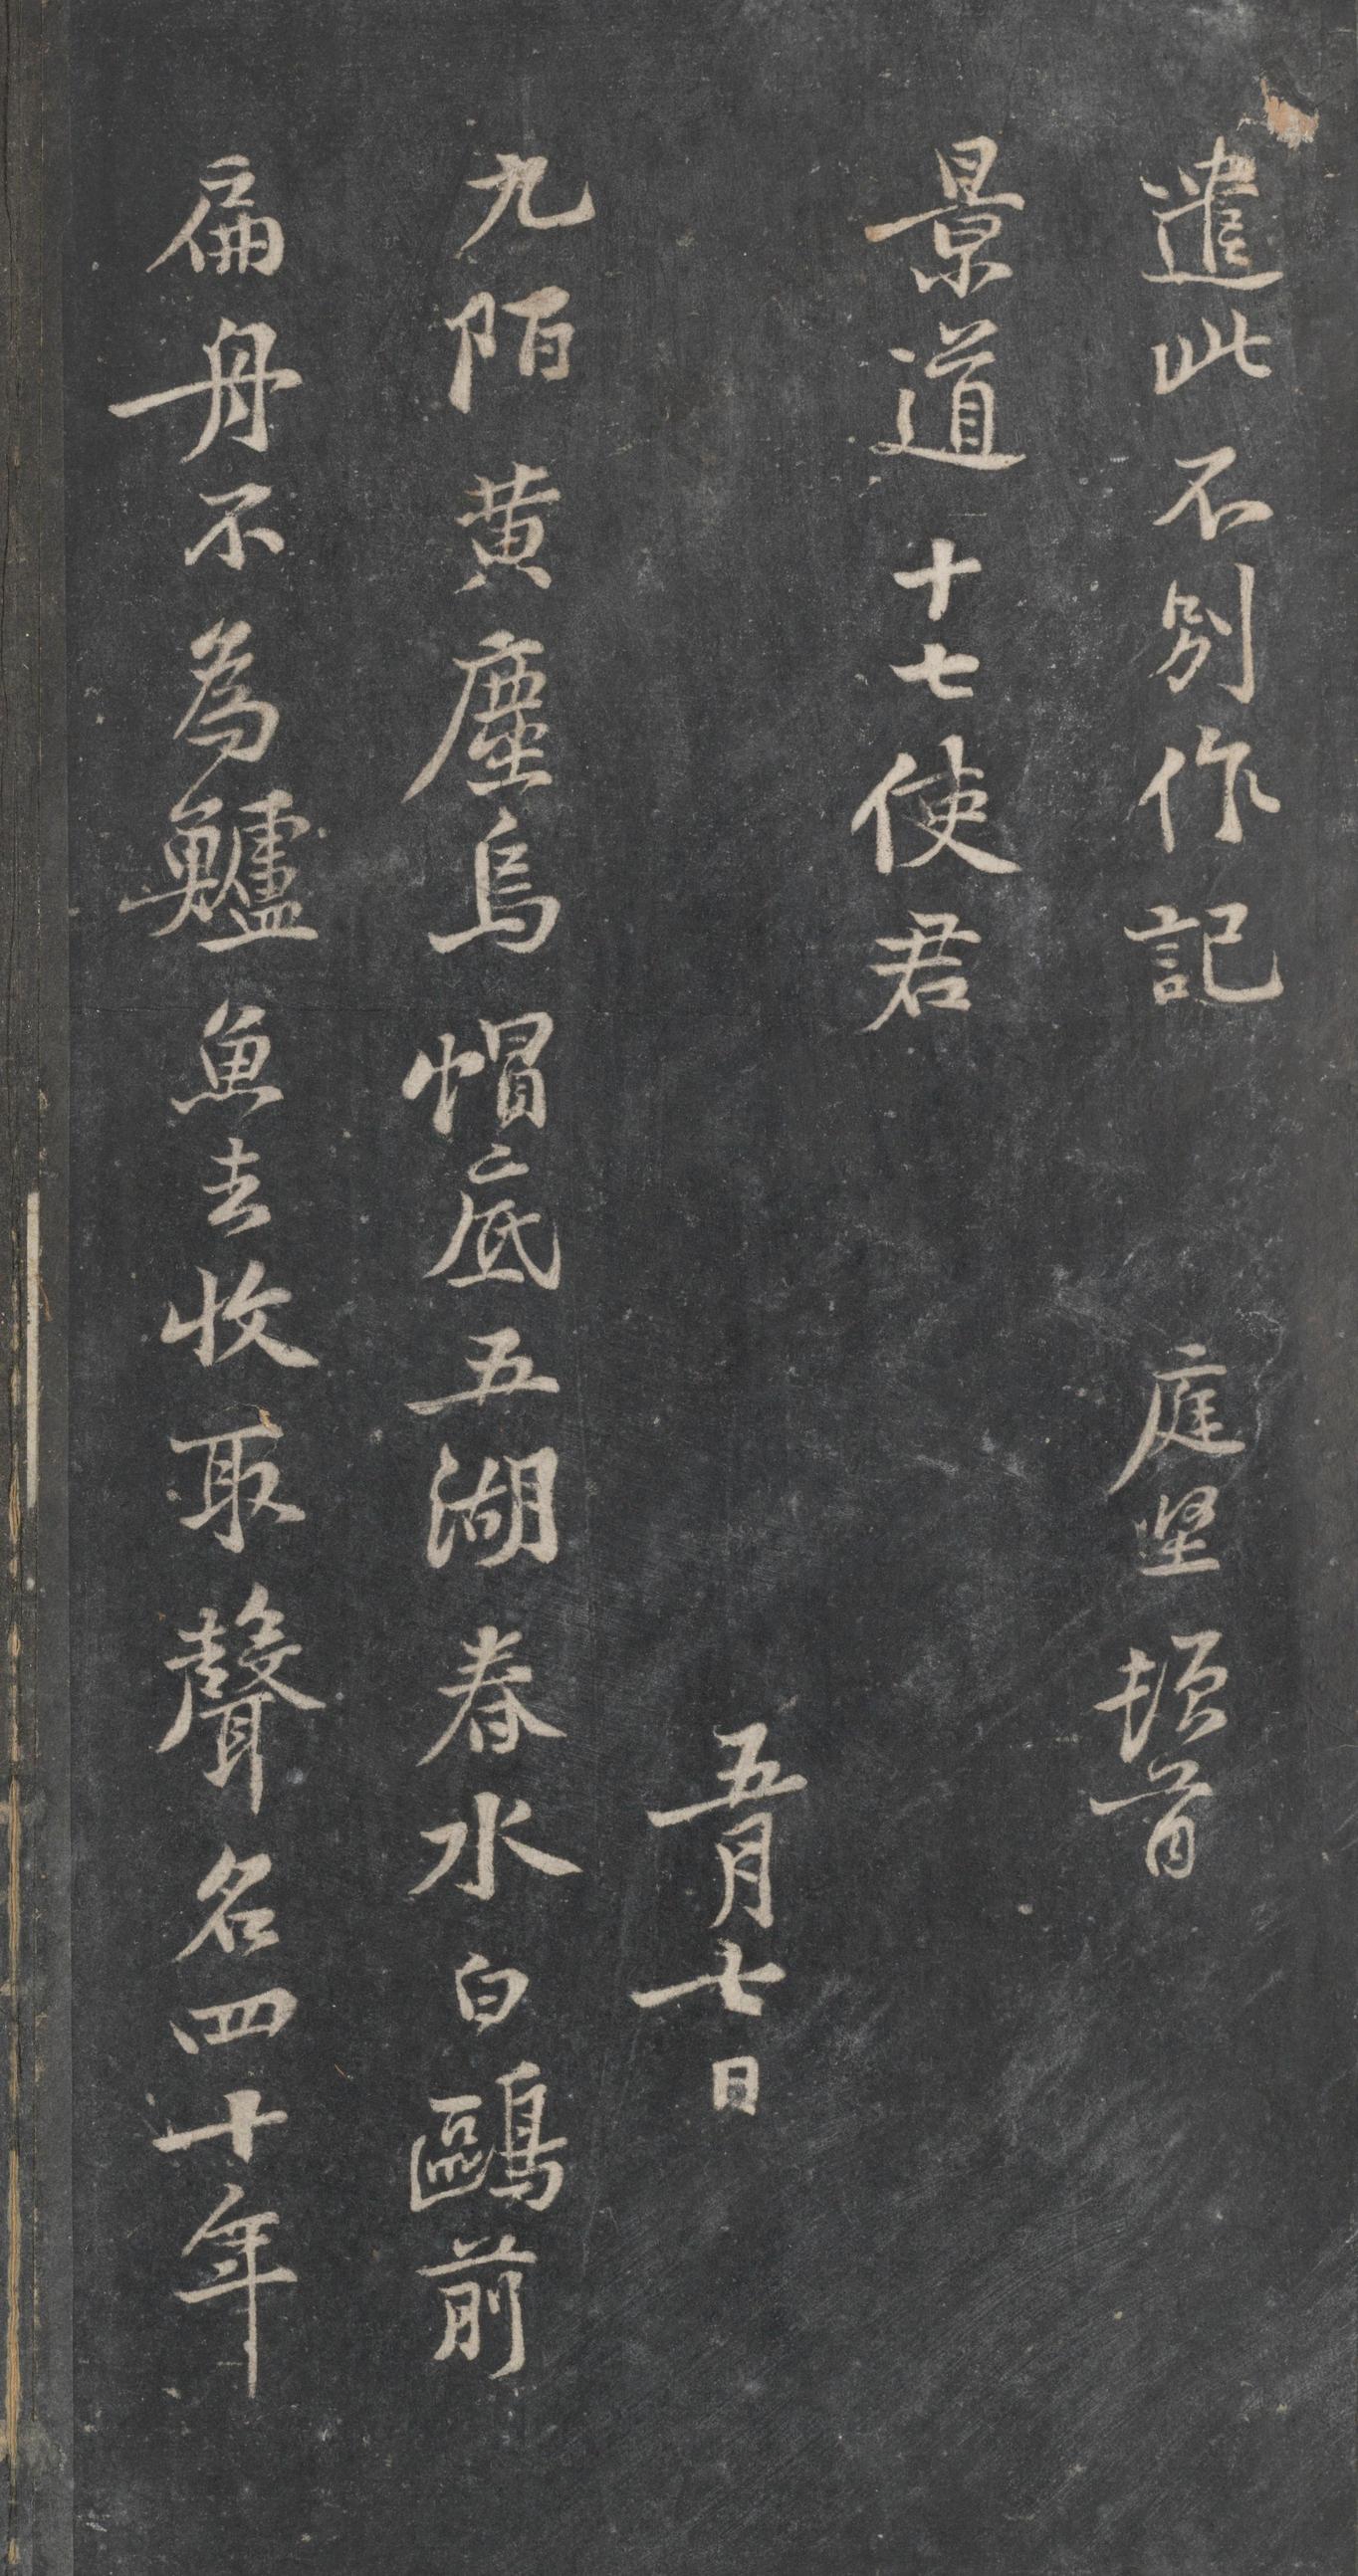 遣此不別作記 庭堅頓首
景道十七使君
五月七日
九陌黄塵烏帽底五湖春水白鷗前
扁舟不為鱸魚去收取聲名四十年